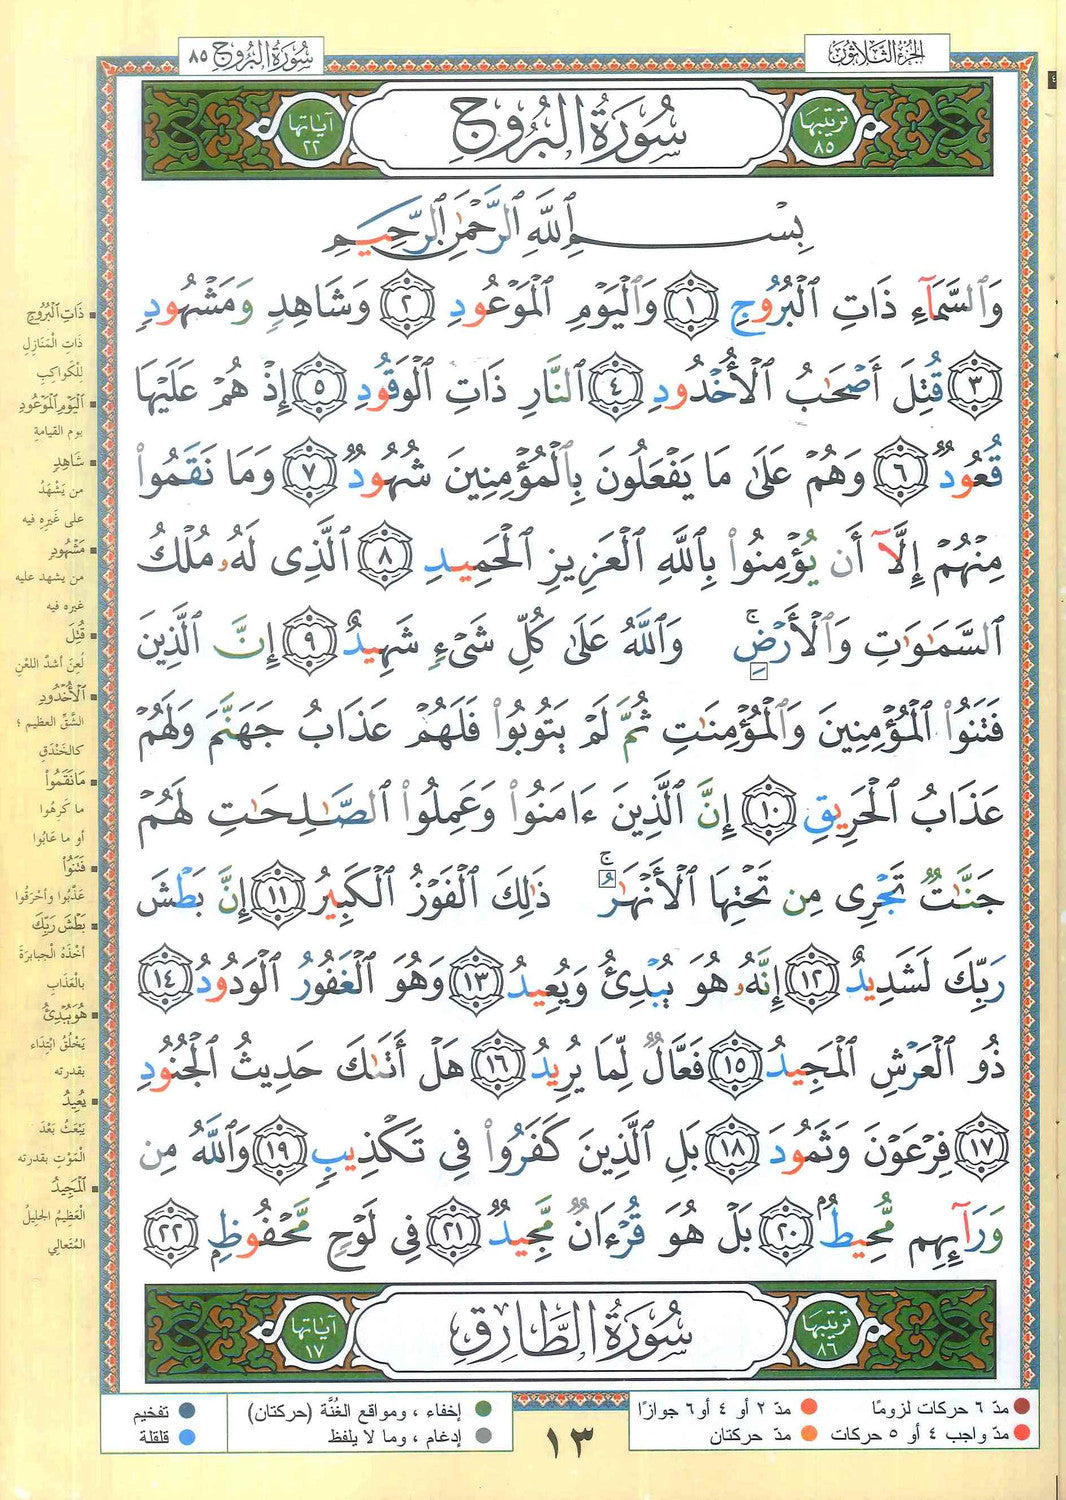 سُورَةُ البُرُوجِ ٨٥
الجُزءُ الثَّلَاثُونَ
آيَاتُهَا ٢٢
سُورَةُ البُرُوجِ
تَرتيبُهَا ٨٥
بِسْمِ ٱللَّهِ ٱلرَّحْمَٰنِ ٱلرَّحِيمِ
وَٱلسَّمَآءِ ذَاتِ ٱلْبُرُوجِ ١ وَٱلْيَوْمِ ٱلْمَوْعُودِ ٢ وَشَاهِدٍ وَمَشْهُودٍ
٣ قُتِلَ أَصْحَٰبُ ٱلْأُخْدُودِ ٤ ٱلنَّارِ ذَاتِ ٱلْوَقُودِ ٥ إِذْ هُمْ عَلَيْهَا
قُعُودٌ ٦ وَهُمْ عَلَىٰ مَا يَفْعَلُونَ بِٱلْمُؤْمِنِينَ شُهُودٌ ٧ وَمَا نَقَمُوا۟
مِنْهُمْ إِلَّآ أَن يُؤْمِنُوا۟ بِٱللَّهِ ٱلْعَزِيزِ ٱلْحَمِيدِ ٨ ٱلَّذِى لَهُۥ مُلْكُ
ٱلسَّمَٰوَٰتِ وَٱلْأَرْضِ ۚ وَٱللَّهُ عَلَىٰ كُلِّ شَىْءٍ شَهِيدٌ ٩ إِنَّ ٱلَّذِينَ
فَتَنُوا۟ ٱلْمُؤْمِنِينَ وَٱلْمُؤْمِنَٰتِ ثُمَّ لَمْ يَتُوبُوا۟ فَلَهُمْ عَذَابُ جَهَنَّمَ وَلَهُمْ
عَذَابُ ٱلْحَرِيقِ ١٠ إِنَّ ٱلَّذِينَ ءَامَنُوا۟ وَعَمِلُوا۟ ٱلصَّٰلِحَٰتِ لَهُمْ
جَنَّٰتٌ تَجْرِى مِن تَحْتِهَا ٱلْأَنْهَٰرُ ۚ ذَٰلِكَ ٱلْفَوْزُ ٱلْكَبِيرُ ١١ إِنَّ بَطْشَ
رَبِّكَ لَشَدِيدٌ ١٢ إِنَّهُۥ هُوَ يُبْدِئُ وَيُعِيدُ ١٣ وَهُوَ ٱلْغَفُورُ ٱلْوَدُودُ ١٤
ذُو ٱلْعَرْشِ ٱلْمَجِيدُ ١٥ فَعَّالٌ لِّمَا يُرِيدُ ١٦ هَلْ أَتَىٰكَ حَدِيثُ ٱلْجُنُودِ
١٧ فِرْعَوْنَ وَثَمُودَ ١٨ بَلِ ٱلَّذِينَ كَفَرُوا۟ فِى تَكْذِيبٍ ١٩ وَٱللَّهُ مِن
وَرَآئِهِم مُّحِيطٌۢ ٢٠ بَلْ هُوَ قُرْءَانٌ مَّجِيدٌ ٢١ فِى لَوْحٍ مَّحْفُوظٍۭ ٢٢
آيَاتُهَا ١٧
سُورَةُ الطَّارِقِ
تَرتيبُهَا ٨٦
ذَاتِ ٱلْبُرُوجِ
ذَاتِ الْمَنَازِلِ
لِلْكَوَاكِبِ
ٱلْيَوْمِ ٱلْمَوْعُودِ
يوم القيامةِ
شَاهِدٍ
من يَشْهَدُ
على غَيرِهِ فيه
مَشْهُودٍ
من يشهد عليه
غيره فيه
قُتِلَ
لُعِنَ أشدَّ اللعْنِ
ٱلْأُخْدُودِ
الشَّقِّ العظيم ؛
كالخَنْدَقِ
مَا نَقَمُوا۟
ما كَرِهُوا
أو ما عَابُوا
فَتَنُوا۟
عَذَّبُوا وأحْرَقُوا
بَطْشَ رَبِّكَ
أخْذَهُ الْجبابرَةَ
بالْعَذَابِ
هُوَ يُبْدِئُ
يَخْلُقُ ابْتِدَاء
بقدرته
يُعِيدُ
يَبْعَثُ بَعْدَ
الْمَوْتِ بقدرته
ٱلْمَجِيدُ
العَظِيمُ الجليلُ
المُتَعالِي
مدّ ٦ حركات لزومًا
مدّ ٢ أو ٤ أو ٦ جوازًا
مدّ واجب ٤ أو ٥ حركات
مدّ حركتان
١٣
إخفاء ، ومواقع الغُنَّة (حركتان)
إدغام ، وما لا يلفظ
تفخيم
قلقلة